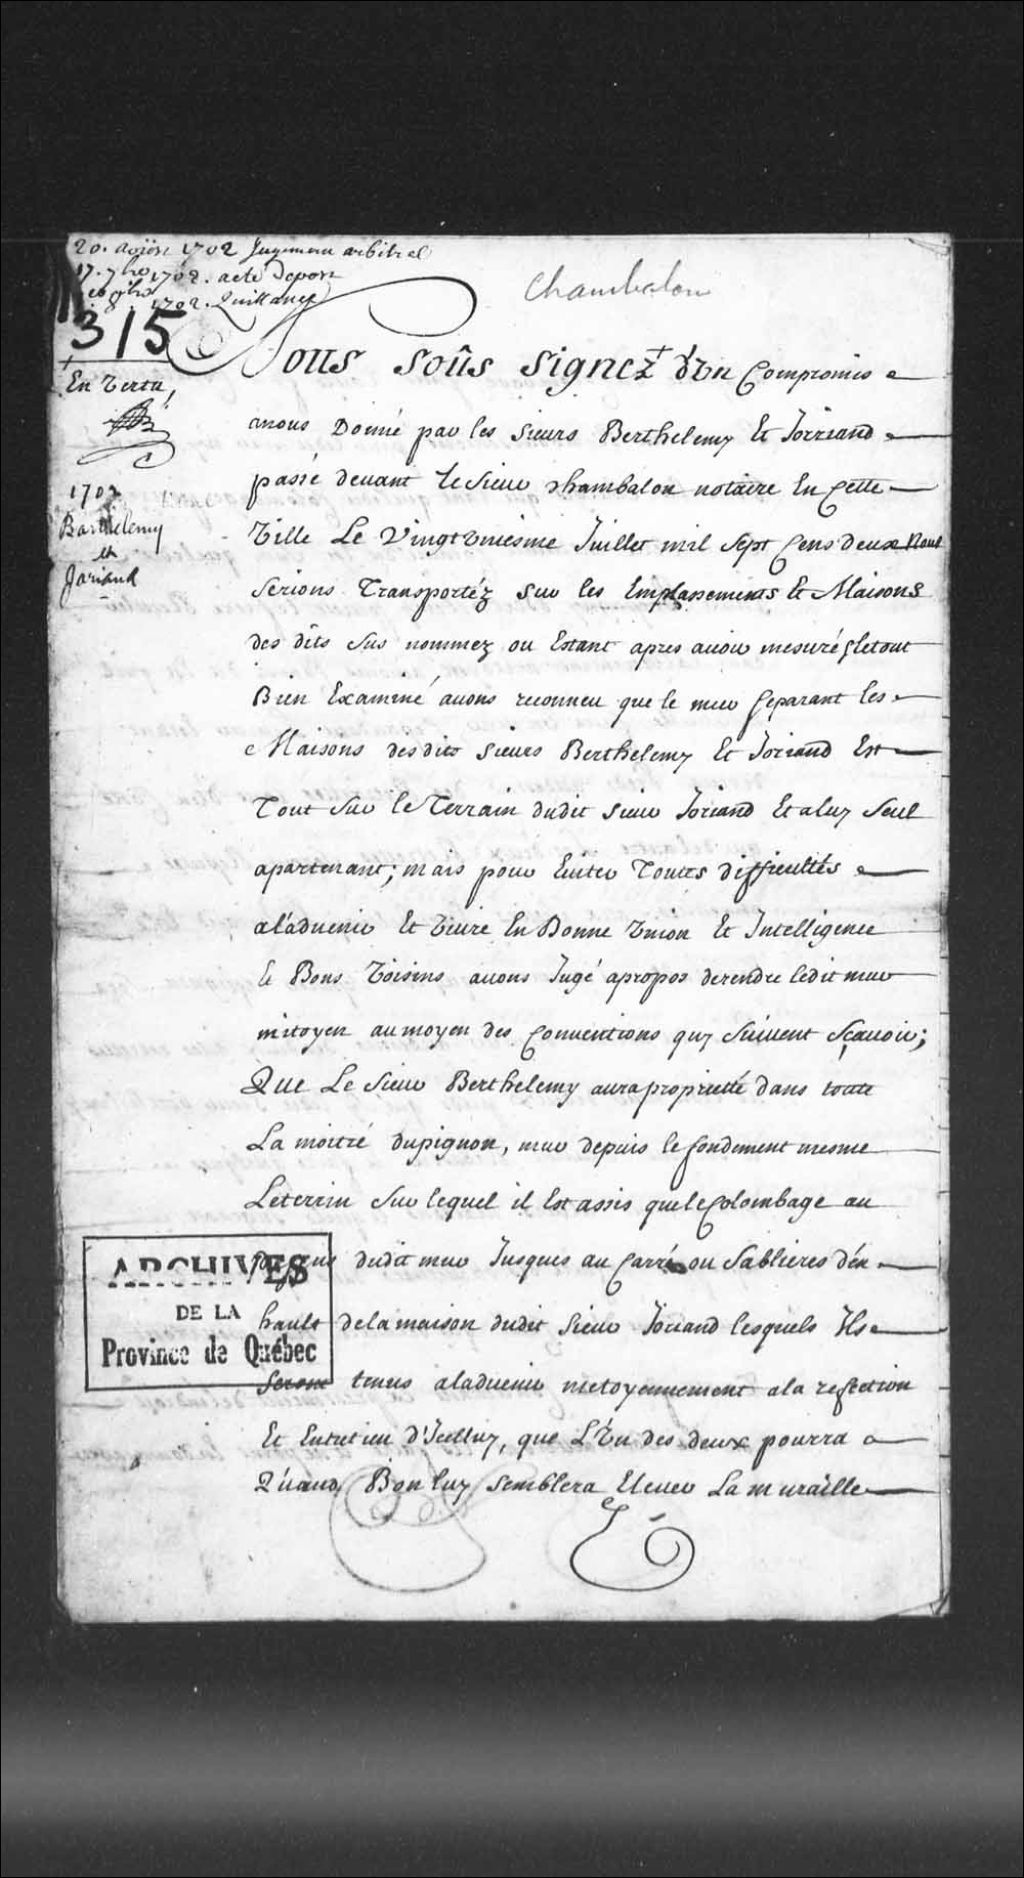 20. aoust 1702 Jugement arbitral
17. 7bre 1702. acte depost
1702. Quittance
Chambalon
315
En Vertu,
1702
Barthelemy
et
Joriand
Nous soûs signez + d'Vn Compromis
anous Donné par les sieurs Berthelemy Et Jorriand
passé deuant le sieur chambalon notaire En Cette
Ville Le Vingt Vniesme Juillet mil Sept Cens deux Nous
serions Transportéz sur les Emplassements Et Maisons
des dits sus nommez ou Estant apres auoir mesuré Et tout
Bien Examiné auons reconneu que le mur separant les
Maisons desdits sieurs Berthelemy Et Joriand Est
Tout sur le Terrain dudit sieur Joriand Et a luy seul
apartenant; mais pour Euiter Toutes difficultés
aláduenir Et Viure En Bonne Vnion Et Intelligence
Et Bons Voisins auons Jugé apropos de rendre ledit mur
mitoyen au moyen des Conuentions quy suiuent Sçauoir;
Que Le Sieur Berthelemy aura proprieté dans toute
La moitié du pignon, mur depuis le fondement mesme
Leterrin sur lequel il Est assis que le Colombage au
dessus dudit mur Jusques au Carré ou Sablieres d'én
hault de la maison dudit sieur Joriand lesquels Ils
Seront tenus aladuenir metoyennement a la refection
Et Entretien d'Icelluy, que L'Vn des deux pourra
Quand Bon luy Semblera Eleuer La muraille
ARCHIVES
DE LA
Province de Québec